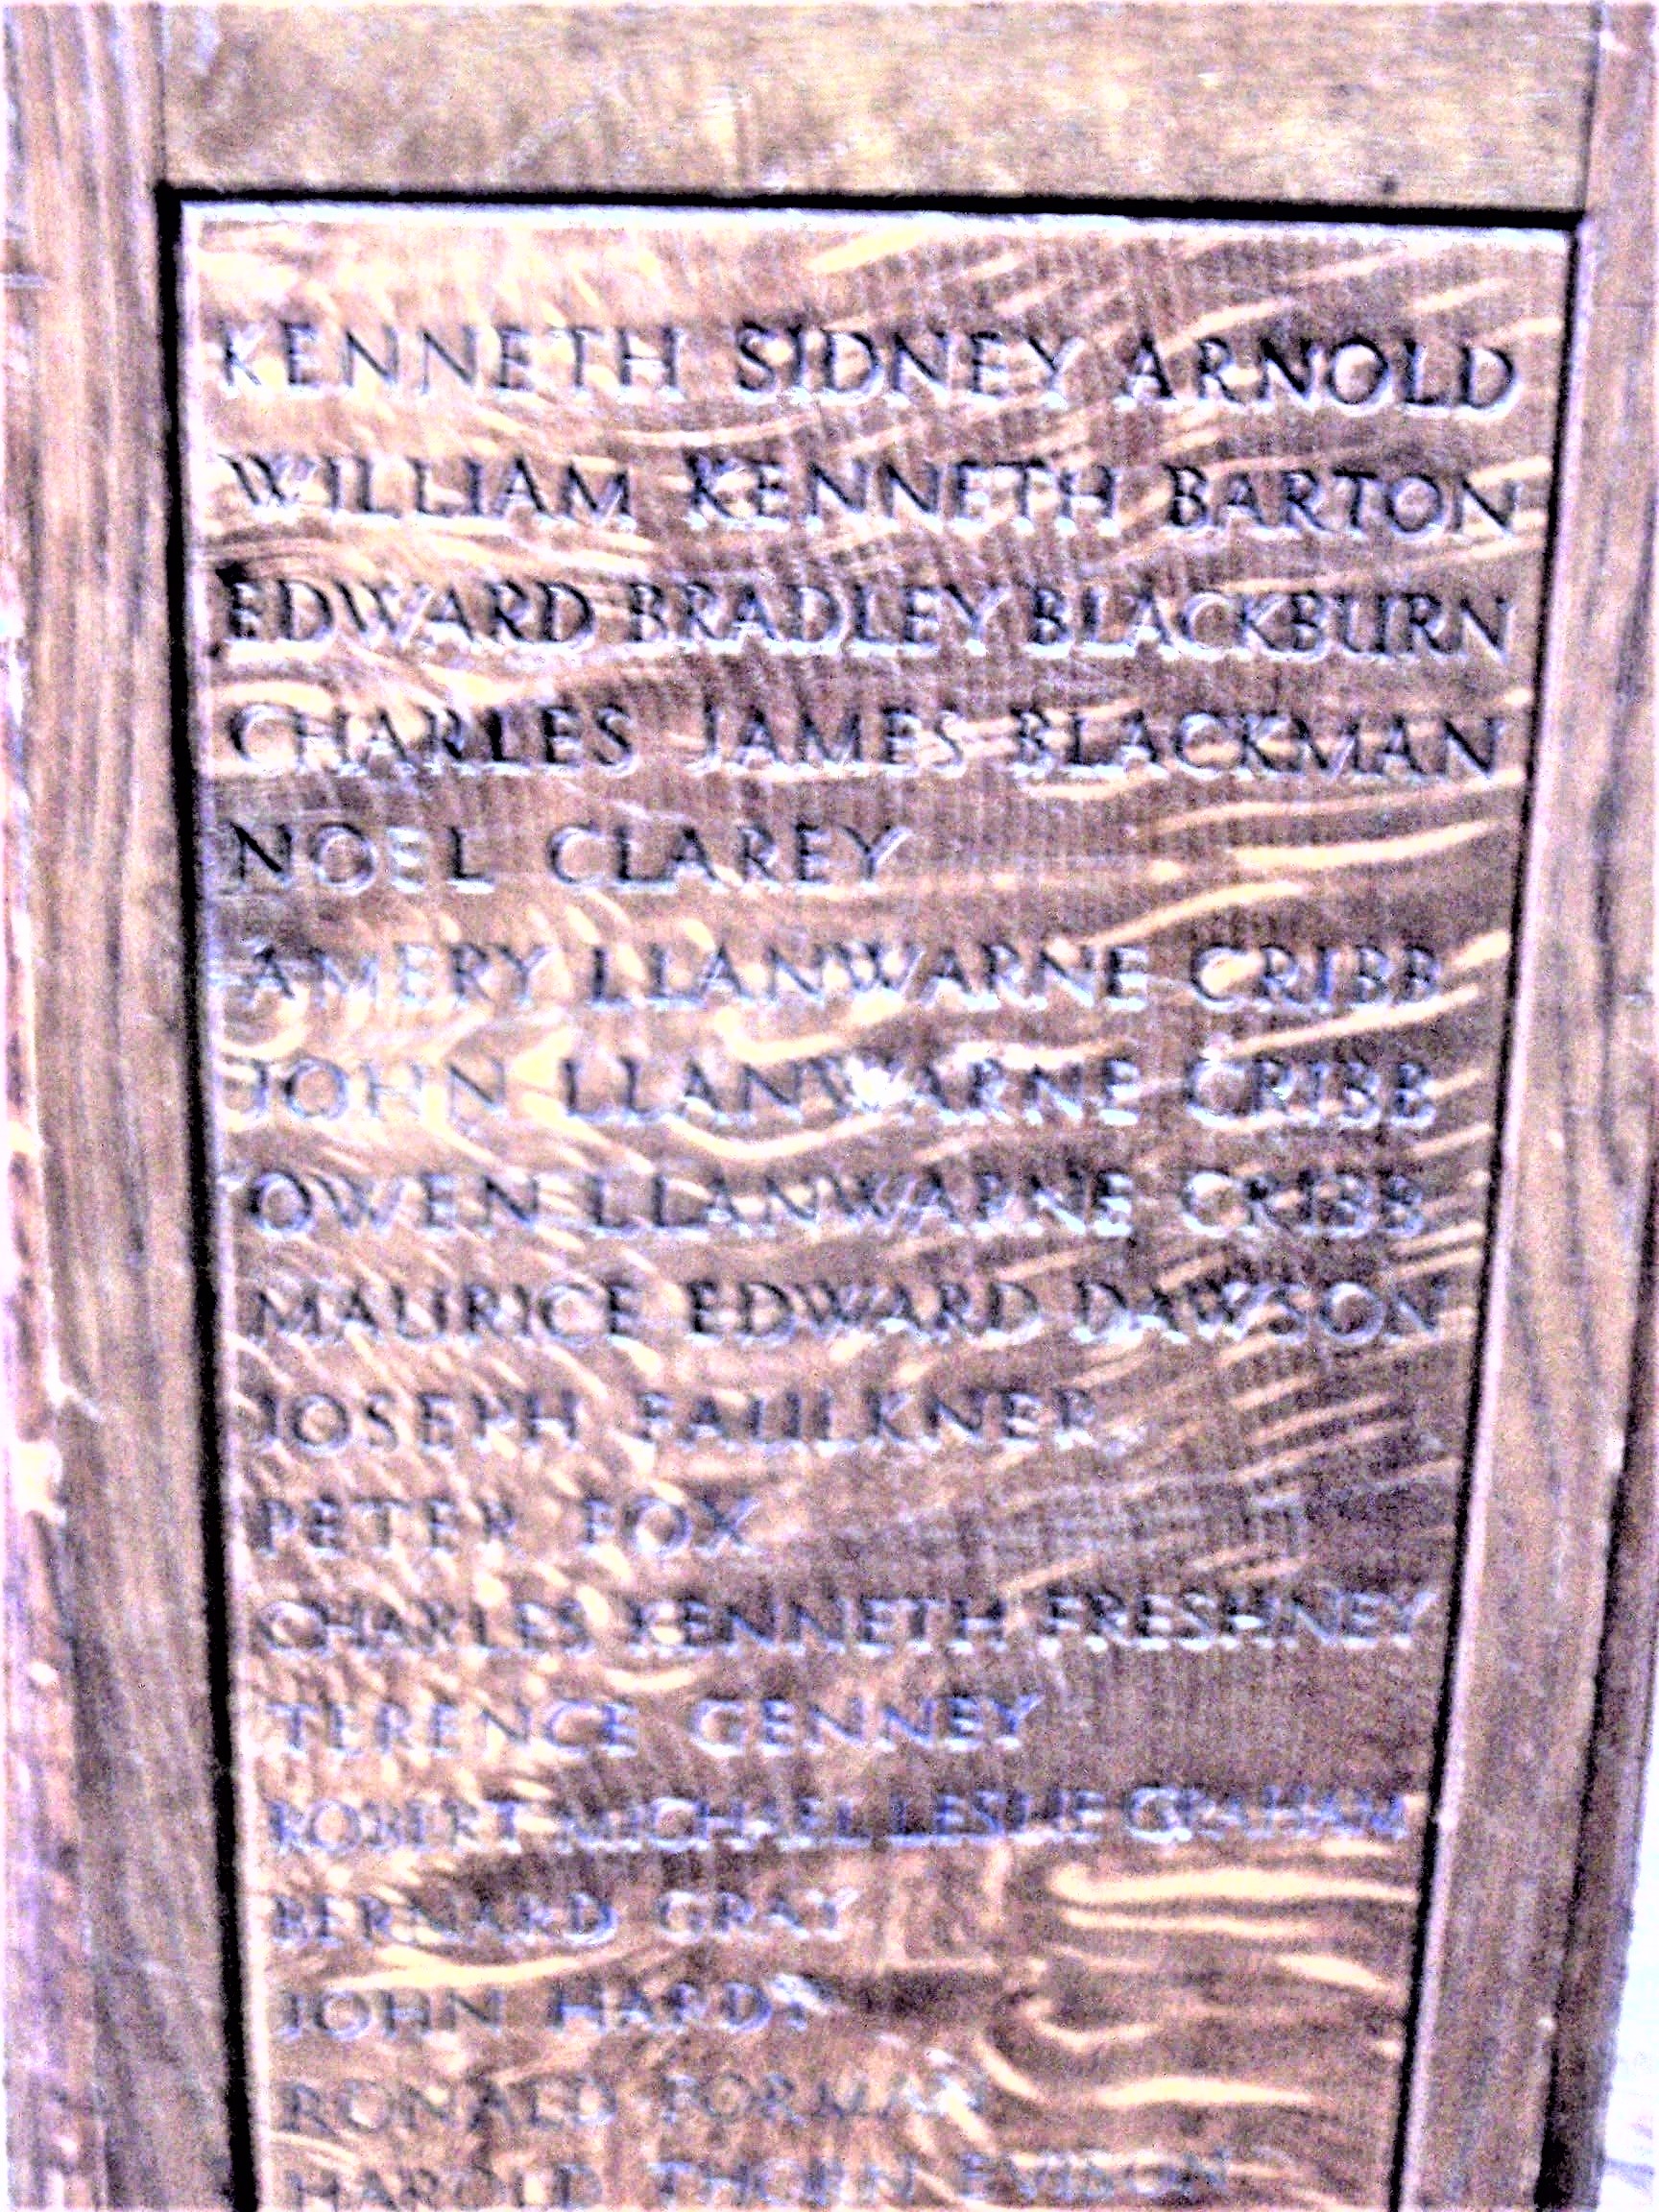 KENNETH SIDNEY ARNOLD
WILLIAM KENNETH BARTON
EDWARD BRADLEY BLACKBURN
CHARLES JAMES BLACKMAN
NOEL CLAREY
AMERY LLANWARNE CRIBB
JOHN LLANWARNE CRIBB
OWEN LLANWARNE CRIBB
MAURICE EDWARD DAWSON
JOSEPH FAULKNER
PETER FOX
CHARLES KENNETH FRESHNEY
TERENCE GENNEY
ROBERT MICHAEL LESLIE GRAHAM
BERNARD GRAY
JOHN HARDY
RONALD FORMAN
HAROLD THORN